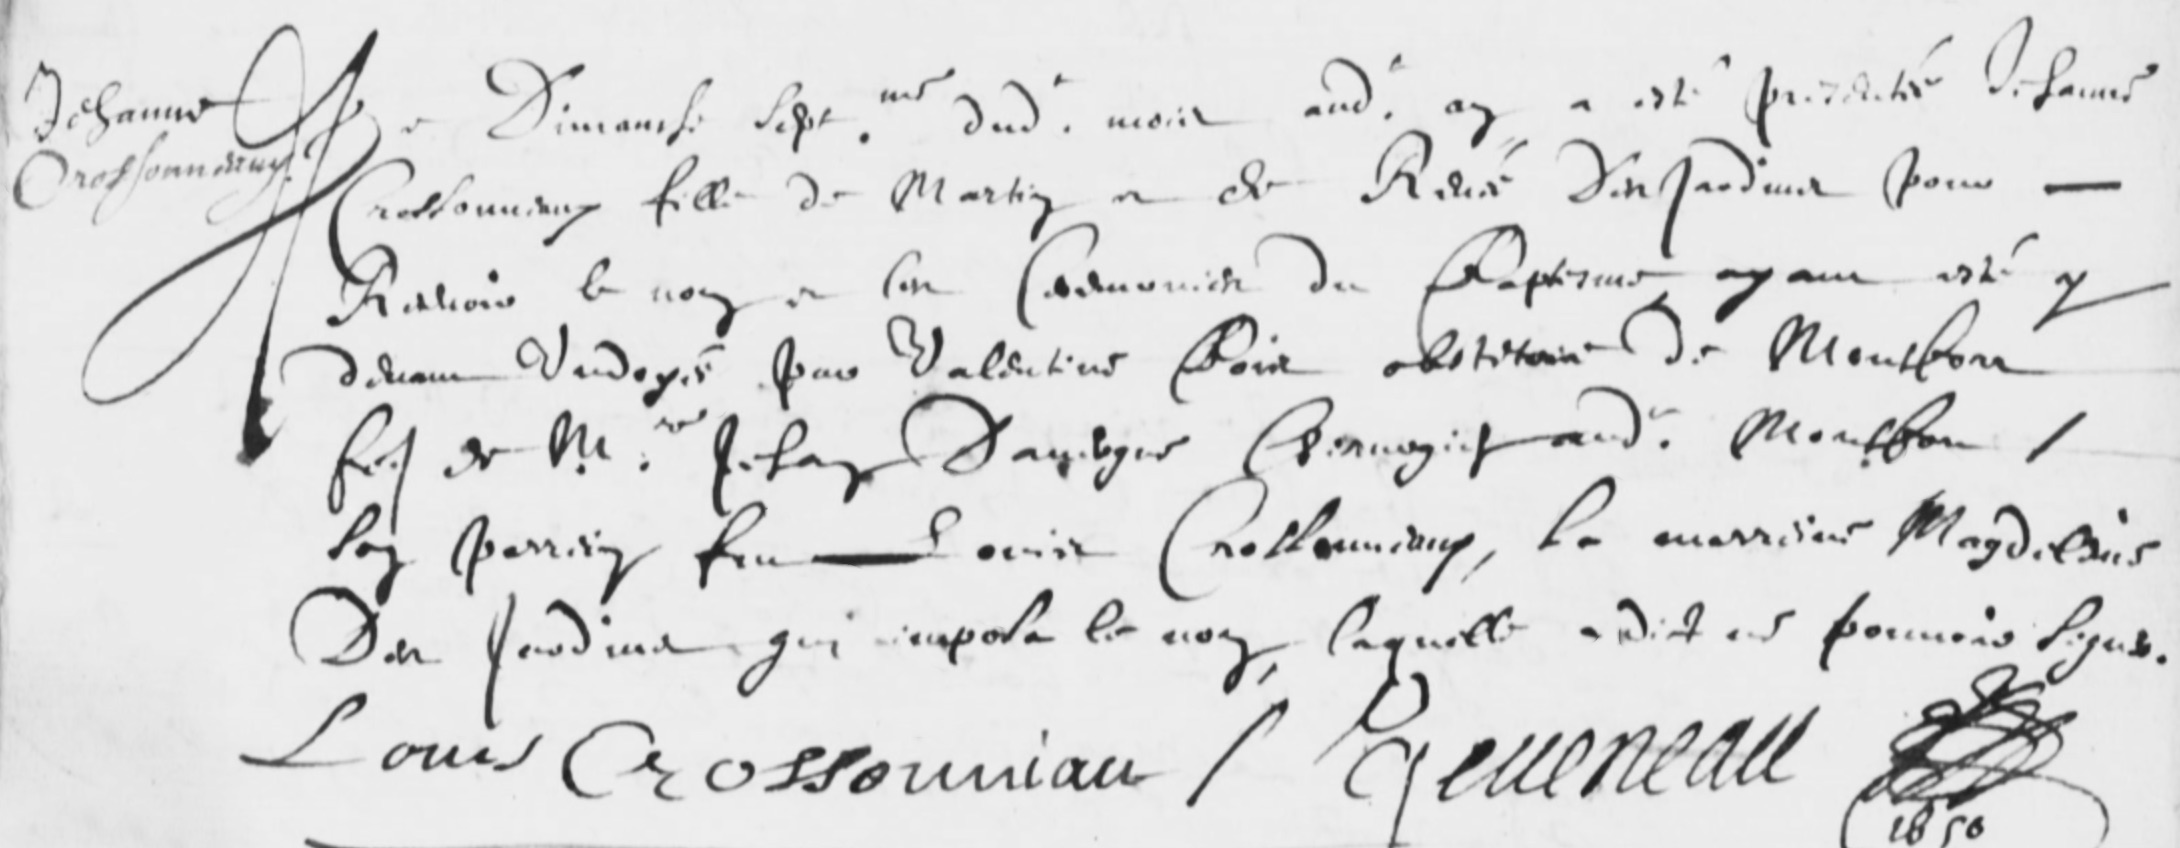 Jehanne
Crossonneau
Le Dimanche sept.me dud. mois aud. an a esté presentée Jehanne
Crossonneau fille de Martin et de Renée Des Jardins pour
Recevoir le nom et les Ceremonies du Baptesme ayant esté cy
devant Undoyée par Valentine obstetrice de Montfort
de M.re Jehan aud. Montfort /
Son parrin fut Louis Crossonneau, la marrine Magdelene
Des Jardins qui imposa le nom, laquelle a dict ne pouvoir signer.
Louis Crossonniau / Geueneau
1656